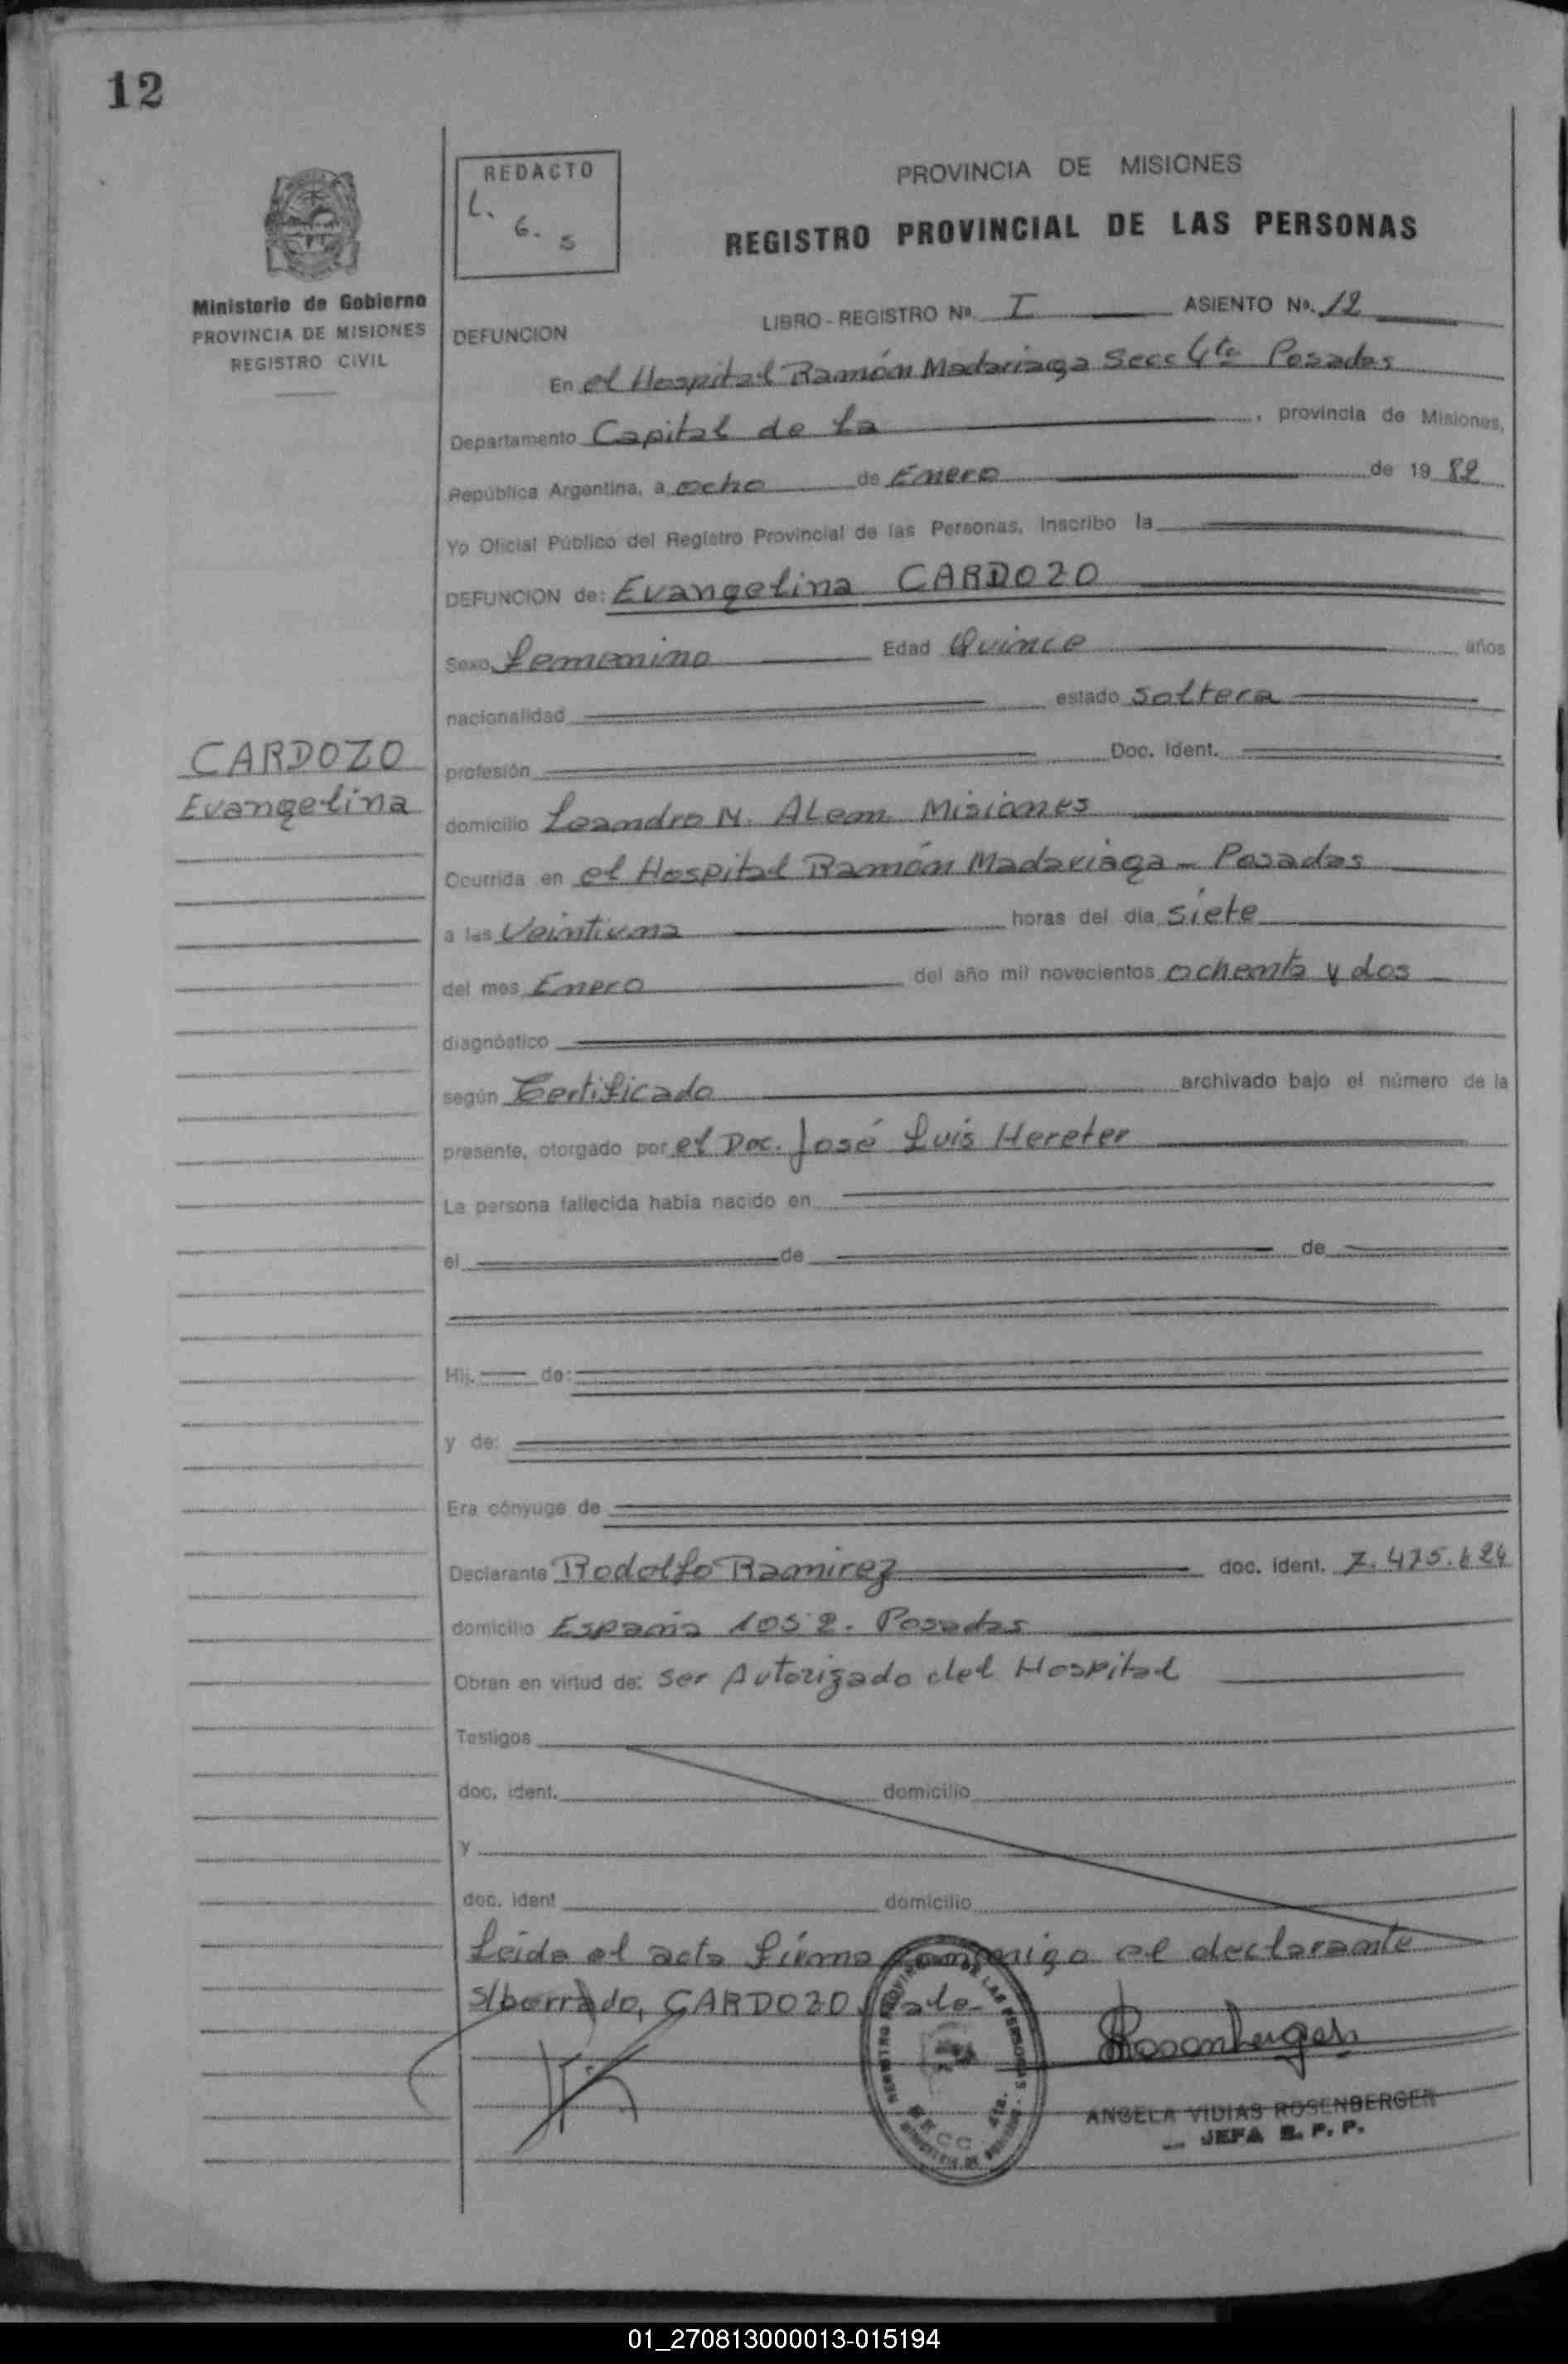 12
REDACTO
L.
6. S
PROVINCIA DE MISIONES
REGISTRO PROVINCIAL DE LAS PERSONAS
Ministerio de Gobierno
PROVINCIA DE MISIONES
REGISTRO CIVIL
DEFUNCION
LIBRO - REGISTRO Nº I ASIENTO Nº. 12
En el Hospital Ramón Madariaga Secc 4ta Posadas
Departamento Capital de La, provincia de Misiones,
República Argentina, a ocho de Enero de 19 82
Yo Oficial Público del Registro Provincial de las Personas, Inscribo la
DEFUNCION de: Evangelina CARDOZO
Sexo Femenino Edad Quince años
nacionalidad estado soltera
CARDOZO
Evangelina
profesión Doc. Ident.
domicilio Leandro N. ALem Misiones
Ocurrida en el Hospital Ramón Madariaga - Posadas
a las Veintiuna horas del día siete
del mes Enero del año mil novecientos ochenta y dos
diagnóstico
según Certificado archivado bajo el número de la
presente, otorgado por el Doc. José Luis Hereter
La persona fallecida había nacido en
el de de
Hij. de:
y de:
Era cónyuge de
Declarante Rodolfo Ramirez doc. ident. 7.475.624
domicilio España 1052. Posadas
Obran en virtud de: ser Autorizado del Hospital
Testigos
doc. ident. domicilio
y
doc. ident domicilio
Leida el acta firma conmigo el declarante
s/borrado, CARDOZO Vale-
Rosenberger
ANGELA VIDIAS ROSENBERGER
JEFA R. P. P.
SECC 4ta.
01_270813000013-015194